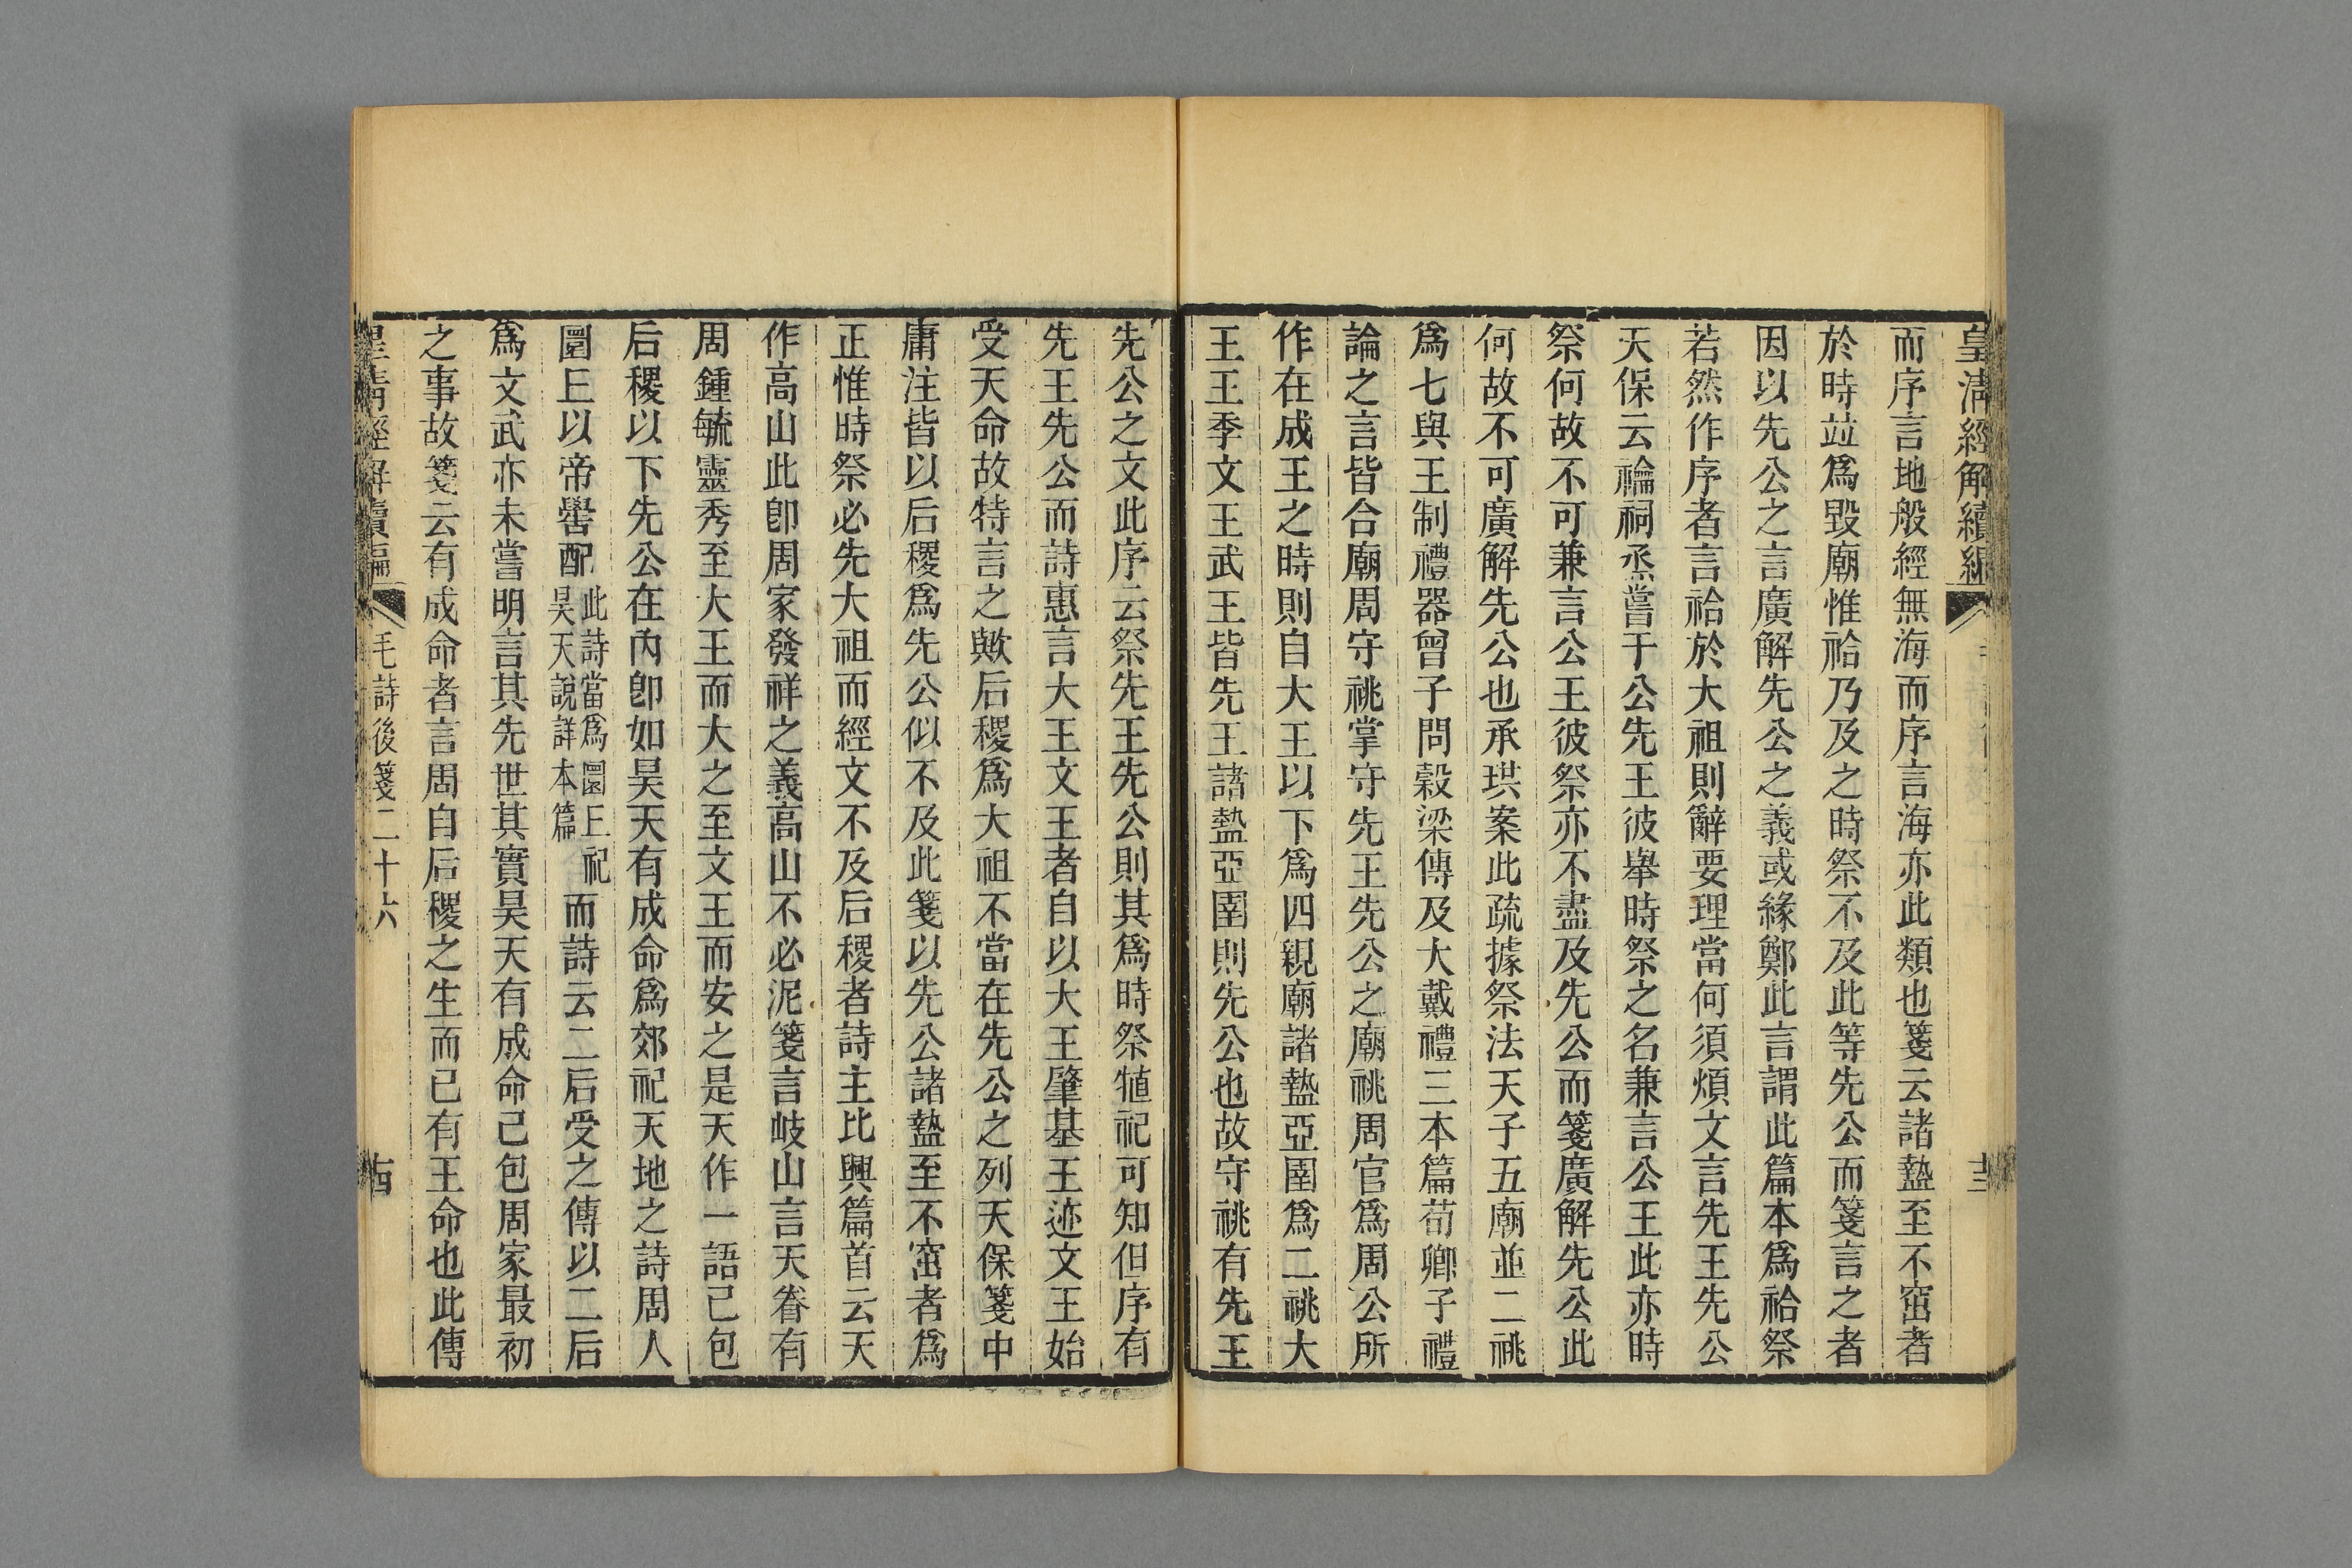 皇清經解續編
而序言地般經無海而序言海亦此類也箋云諸盩至不窋者
於時竝爲毀廟惟祫乃及之時祭不及此等先公而箋言之者
因以先公之言廣解先公之義或緣鄭此言謂此篇本爲祫祭
若然作序者言祫於大祖則辭要理當何須煩文言先王先公
天保云禴祠烝嘗于公先王彼舉時祭之名兼言公王此亦時
祭何故不可兼言公王彼祭亦不盡及先公而箋廣解先公此
何故不可廣解先公也承珙案此疏據祭法天子五廟並二祧
爲七與王制禮器曾子問穀梁傳及大戴禮三本篇荀卿子禮
論之言皆合廟周守祧掌守先王先公之廟祧周官爲周公所
作在成王之時則自大王以下爲四親廟諸盩亞圉爲二祧大
王王季文王武王皆先王諸盩亞圉則先公也故守祧有先王
先公之文此序云祭先王先公則其爲時祭犆祀可知但序有
先王先公而詩惠言大王文王者自以大王肇基王迹文王始
受天命故特言之歟后稷爲大祖不當在先公之列天保箋中
庸注皆以后稷爲先公似不及此箋以先公諸盩至不窋者爲
正惟時祭必先大祖而經文不及后稷者詩主比興篇首云天
作高山此卽周家發祥之義高山不必泥箋言岐山言天眷有
周鍾毓靈秀至大王而大之至文王而安之是天作一語已包
后稷以下先公在內卽如昊天有成命爲郊祀天地之詩周人
圜丘以帝嚳配此詩當爲圜丘祀昊天說詳本篇而詩云二后受之傳以二后
爲文武亦未嘗明言其先世其實昊天有成命已包周家最初
之事故箋云有成命者言周自后稷之生而已有王命也此傳
皇清經解續編
毛詩後箋二十六
十四